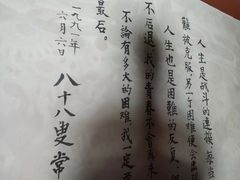 人生是战斗的連続，每当
難被克服，另一个困难便会出
人生也是困難的反复，
不后退，我的青春不会
不論有多大的困难，我一定
最后。
一九九一年
六月六日
八十八叟常